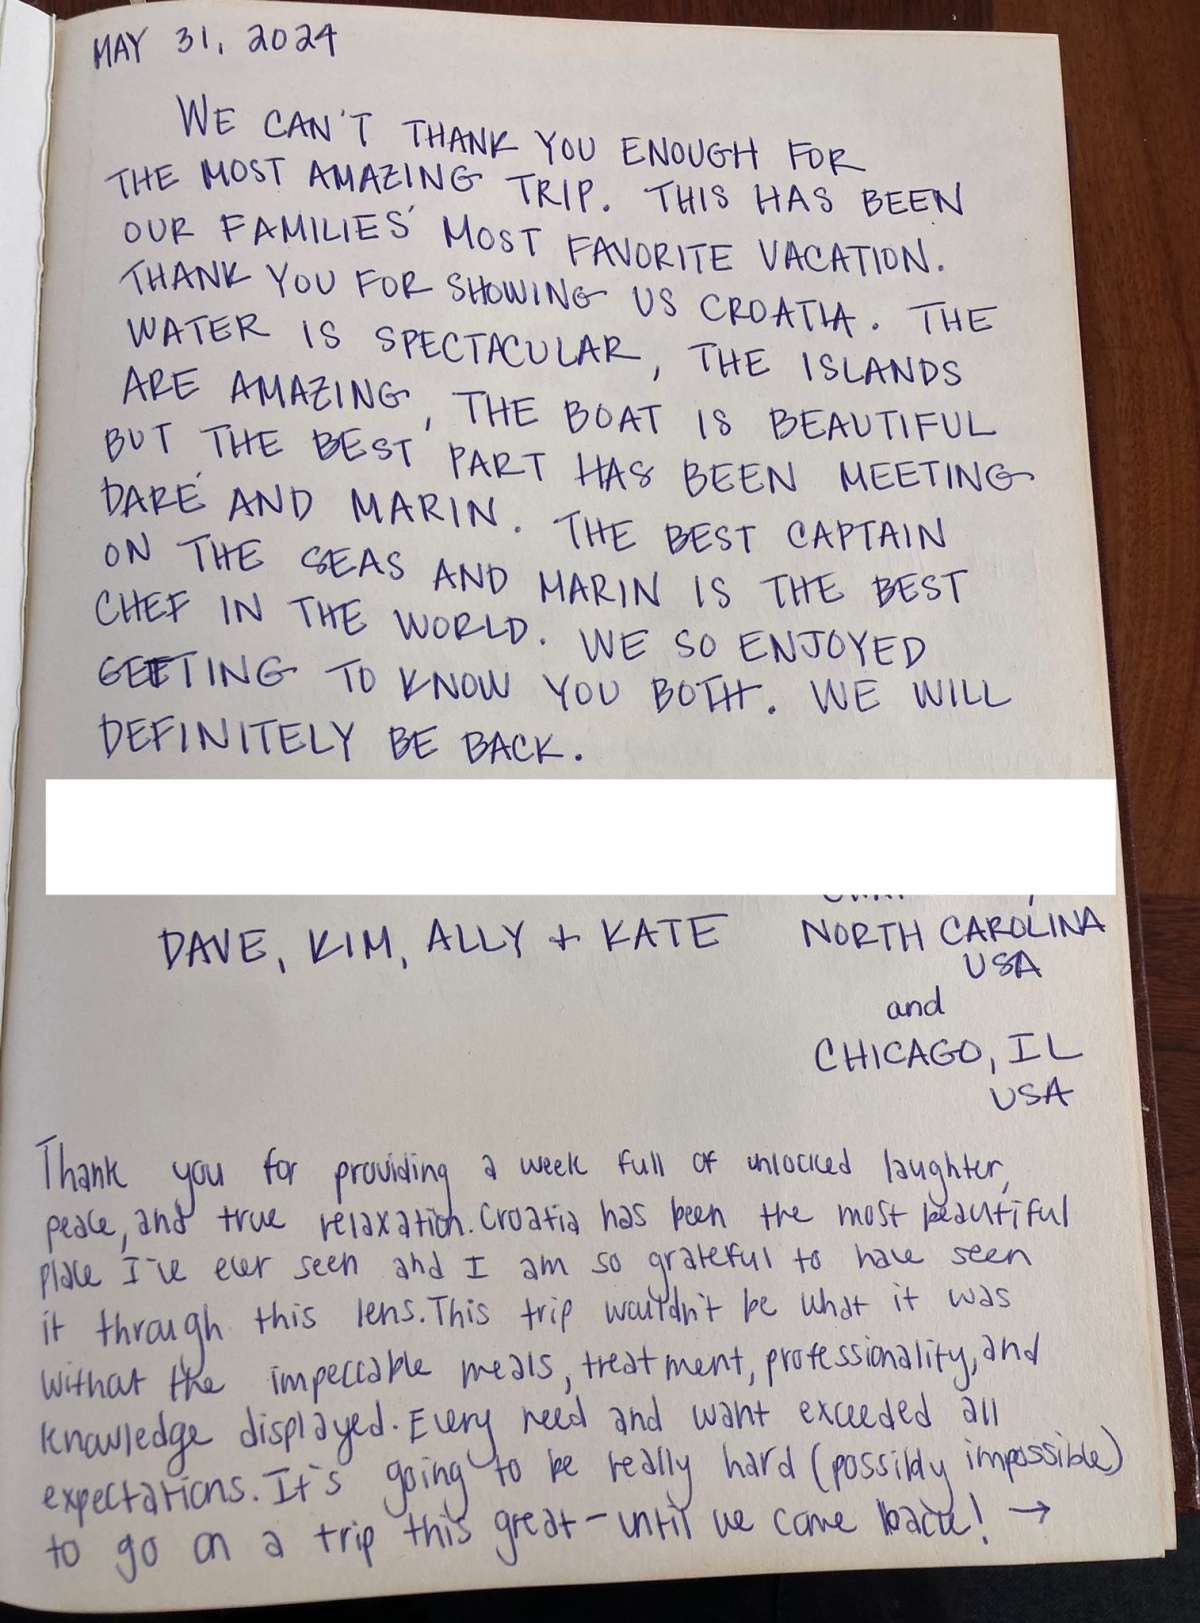 MAY 31, 2024
WE CAN'T THANK YOU ENOUGH FOR
THE MOST AMAZING TRIP. THIS HAS BEEN
OUR FAMILIES' MOST FAVORITE VACATION.
THANK YOU FOR SHOWING US CROATIA. THE
WATER IS SPECTACULAR, THE ISLANDS
ARE AMAZING, THE BOAT IS BEAUTIFUL
BUT THE BEST PART HAS BEEN MEETING
DARE AND MARIN. THE BEST CAPTAIN
ON THE SEAS AND MARIN IS THE BEST
CHEF IN THE WORLD. WE SO ENJOYED
GETTING TO KNOW YOU BOTH. WE WILL
DEFINITELY BE BACK.
DAVE, KIM, ALLY + KATE
NORTH CAROLINA
USA
and
CHICAGO, IL
USA
Thank you for providing a week full of unlocked laughter,
peace, and true relaxation. Croatia has been the most beautiful
place I've ever seen and I am so grateful to have seen
it through this lens. This trip wouldn't be what it was
without the impeccable meals, treatment, professionality, and
knowledge displayed. Every need and want exceeded all
expectations. It's going to be really hard (possibly impossible)
to go on a trip this great - until we come back! →